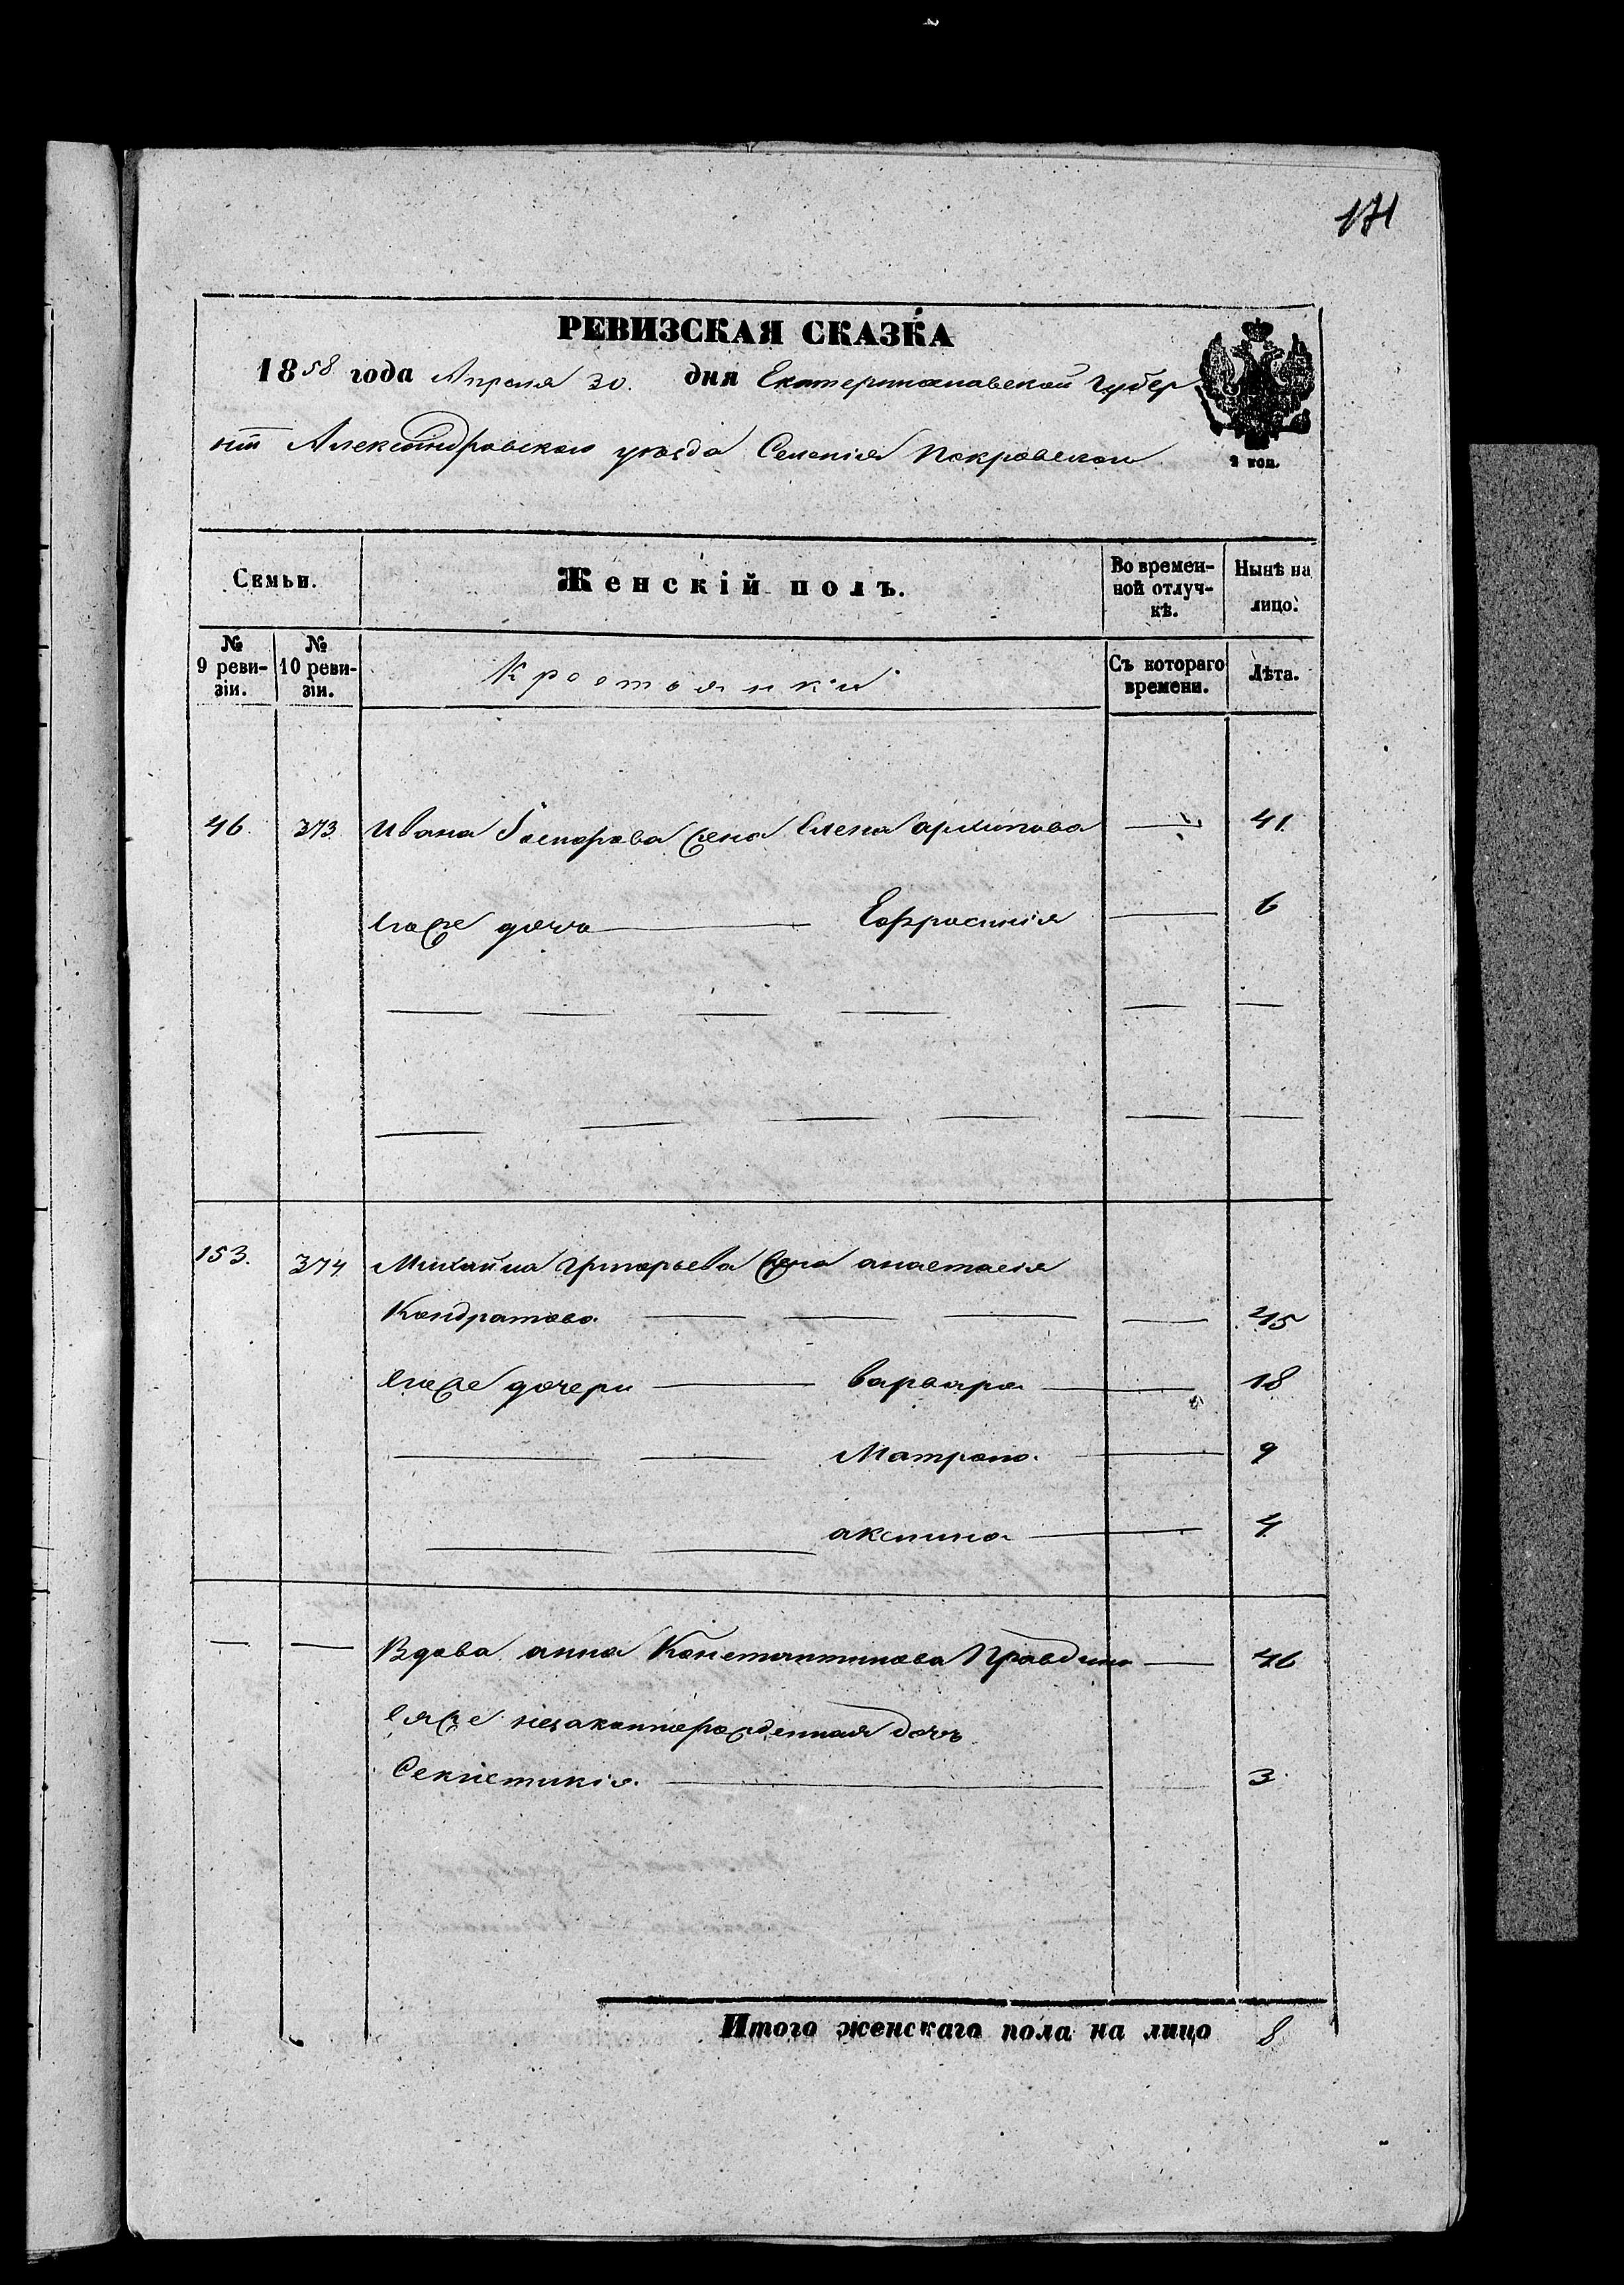 171
РЕВИЗСКАЯ СКАЗКА
1858 года Апреля 30. дня Екатеринославской Губер
ніи Александровского уезда Селенія Покровского
2 коп.
Семьи. Женскій полъ. Во времен- Нынѣ на
ной отлуч- лицо.
кѣ.
№ № Крестьянки Съ котораго Лѣта.
9 реви- 10 реви- времени.
зіи. зіи.
46. 373. Ивана жена Елена архипова — 41
его же дочь — Ефросинія — 6
153. 374. Михайла Григорьева жена анастасія
Кондратова — 45
его же дочери — варвара — 18
Матрона — 9
аксинья — 4
— — Вдова анна Константинова Правдина — 46
ея же незаконнорожденная дочь
— 3
Итого женскаго пола на лицо 8